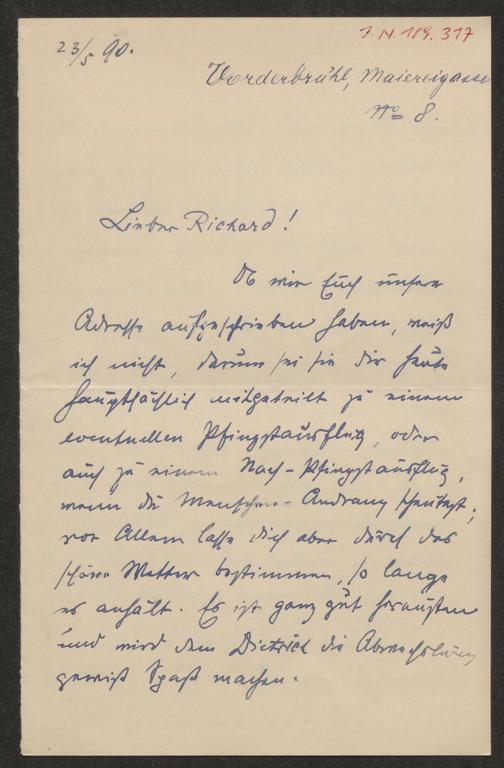 23/5 90.
J. N. 189.317
Vorderbrühl, Maiereigasse
No 8.
Lieber Richard!
Ob wir Euch unsere
Adresse aufgeschrieben haben, weiß
ich nicht, darum sei sie dir heute
hauptsächlich mitgeteilt zu einem
eventuellen Pfingstausflug, oder
auch zu einem Nach-Pfingstausflug,
wenn du Menschen-Andrang scheutest;
vor Allem lasse dich aber durch das
schöne Wetter bestimmen, so lange
es anhält. Es ist ganz gut heraußen
und wird dem Dietrich die Abwechslung
gewiß Spaß machen.